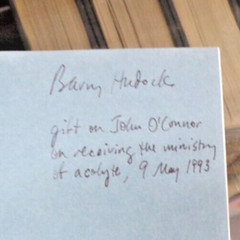 Barry Hudock
gift on John O'Connor
on receiving the ministry
of acolyte, 9 May 1993